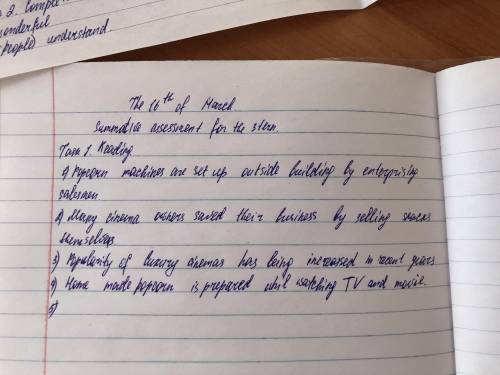 2. Complete
wonderful
people) understand.
The 16th of March.
Summative assessment for the term.
Task 1. Reading
1) Popcorn machines are set up outside building by enterprising
salesmen.
2) Many cinema owners saved their business by selling snacks
themselves.
3) Popularity of luxury cinemas has being increased in recent years
4) Home made popcorn is prepared whil watching TV and movie.
5)